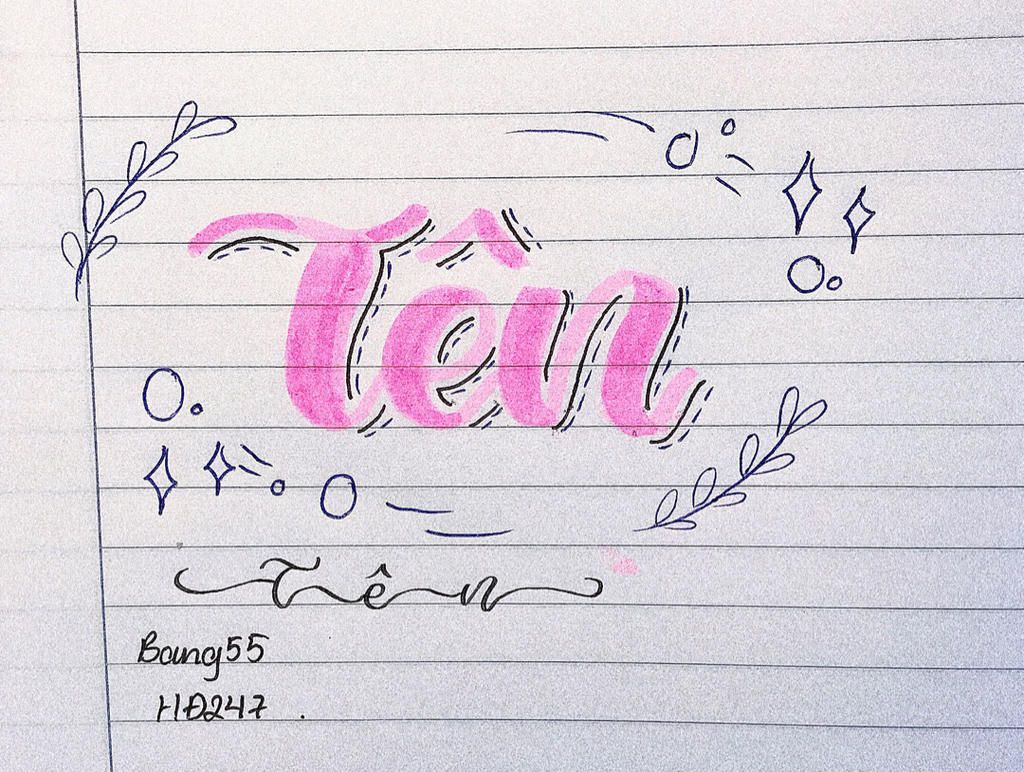 Tên
Tên
Bang55
HĐ247.